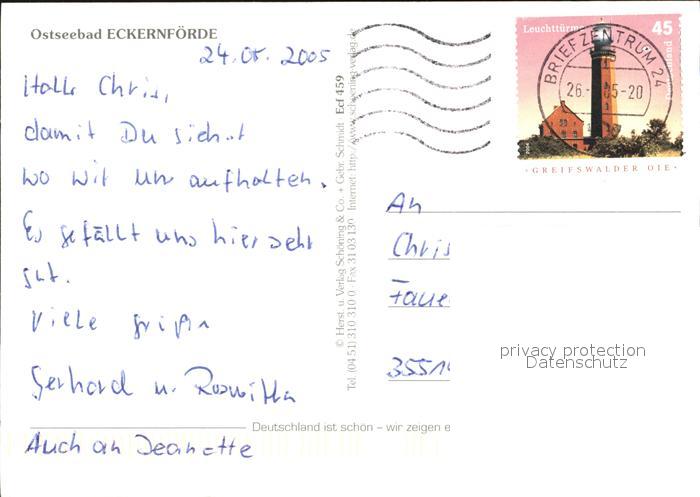 Ostseebad ECKERNFÖRDE
24.08. 2005
Hallo Chris,
damit Du siehst
wo wir uns aufhalten.
Es gefällt uns hier sehr
gut.
Viele Grüße
Gerhard u. Roswitha
Auch an Jeanette
Deutschland ist schön – wir zeigen e
© Herst. u. Verlag Schöning & Co. + Gebr. Schmidt Ecf 459
Tel. (04 51) 310 310 0 · Fax 31 03 130 Internet: http://www.schoening-verlag.de
Leuchttürme
45
Deutschland
BRIEFZENTRUM 24
26. 05-20
GREIFSWALDER OIE
An
Chris
3551
privacy protection
Datenschutz